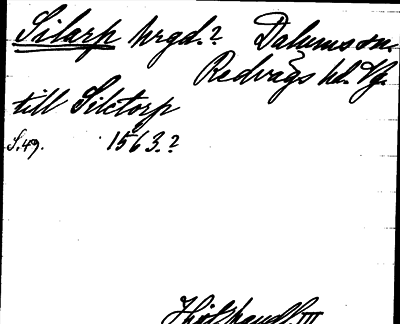 Silarp hrgd.? Dalums sn.
Redvägs hd. Vg.
till Siletorp
S.49. 1563.?